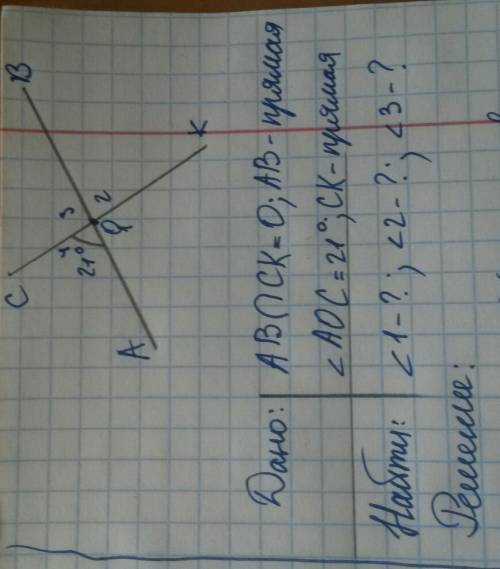 B
K
3
2
4
O
21°
C
A
Дано: AB∩CK=O; AB-прямая
<AOC=21°; CK-прямая
Найти: <1-?; <2-?; <3-?
Решение: